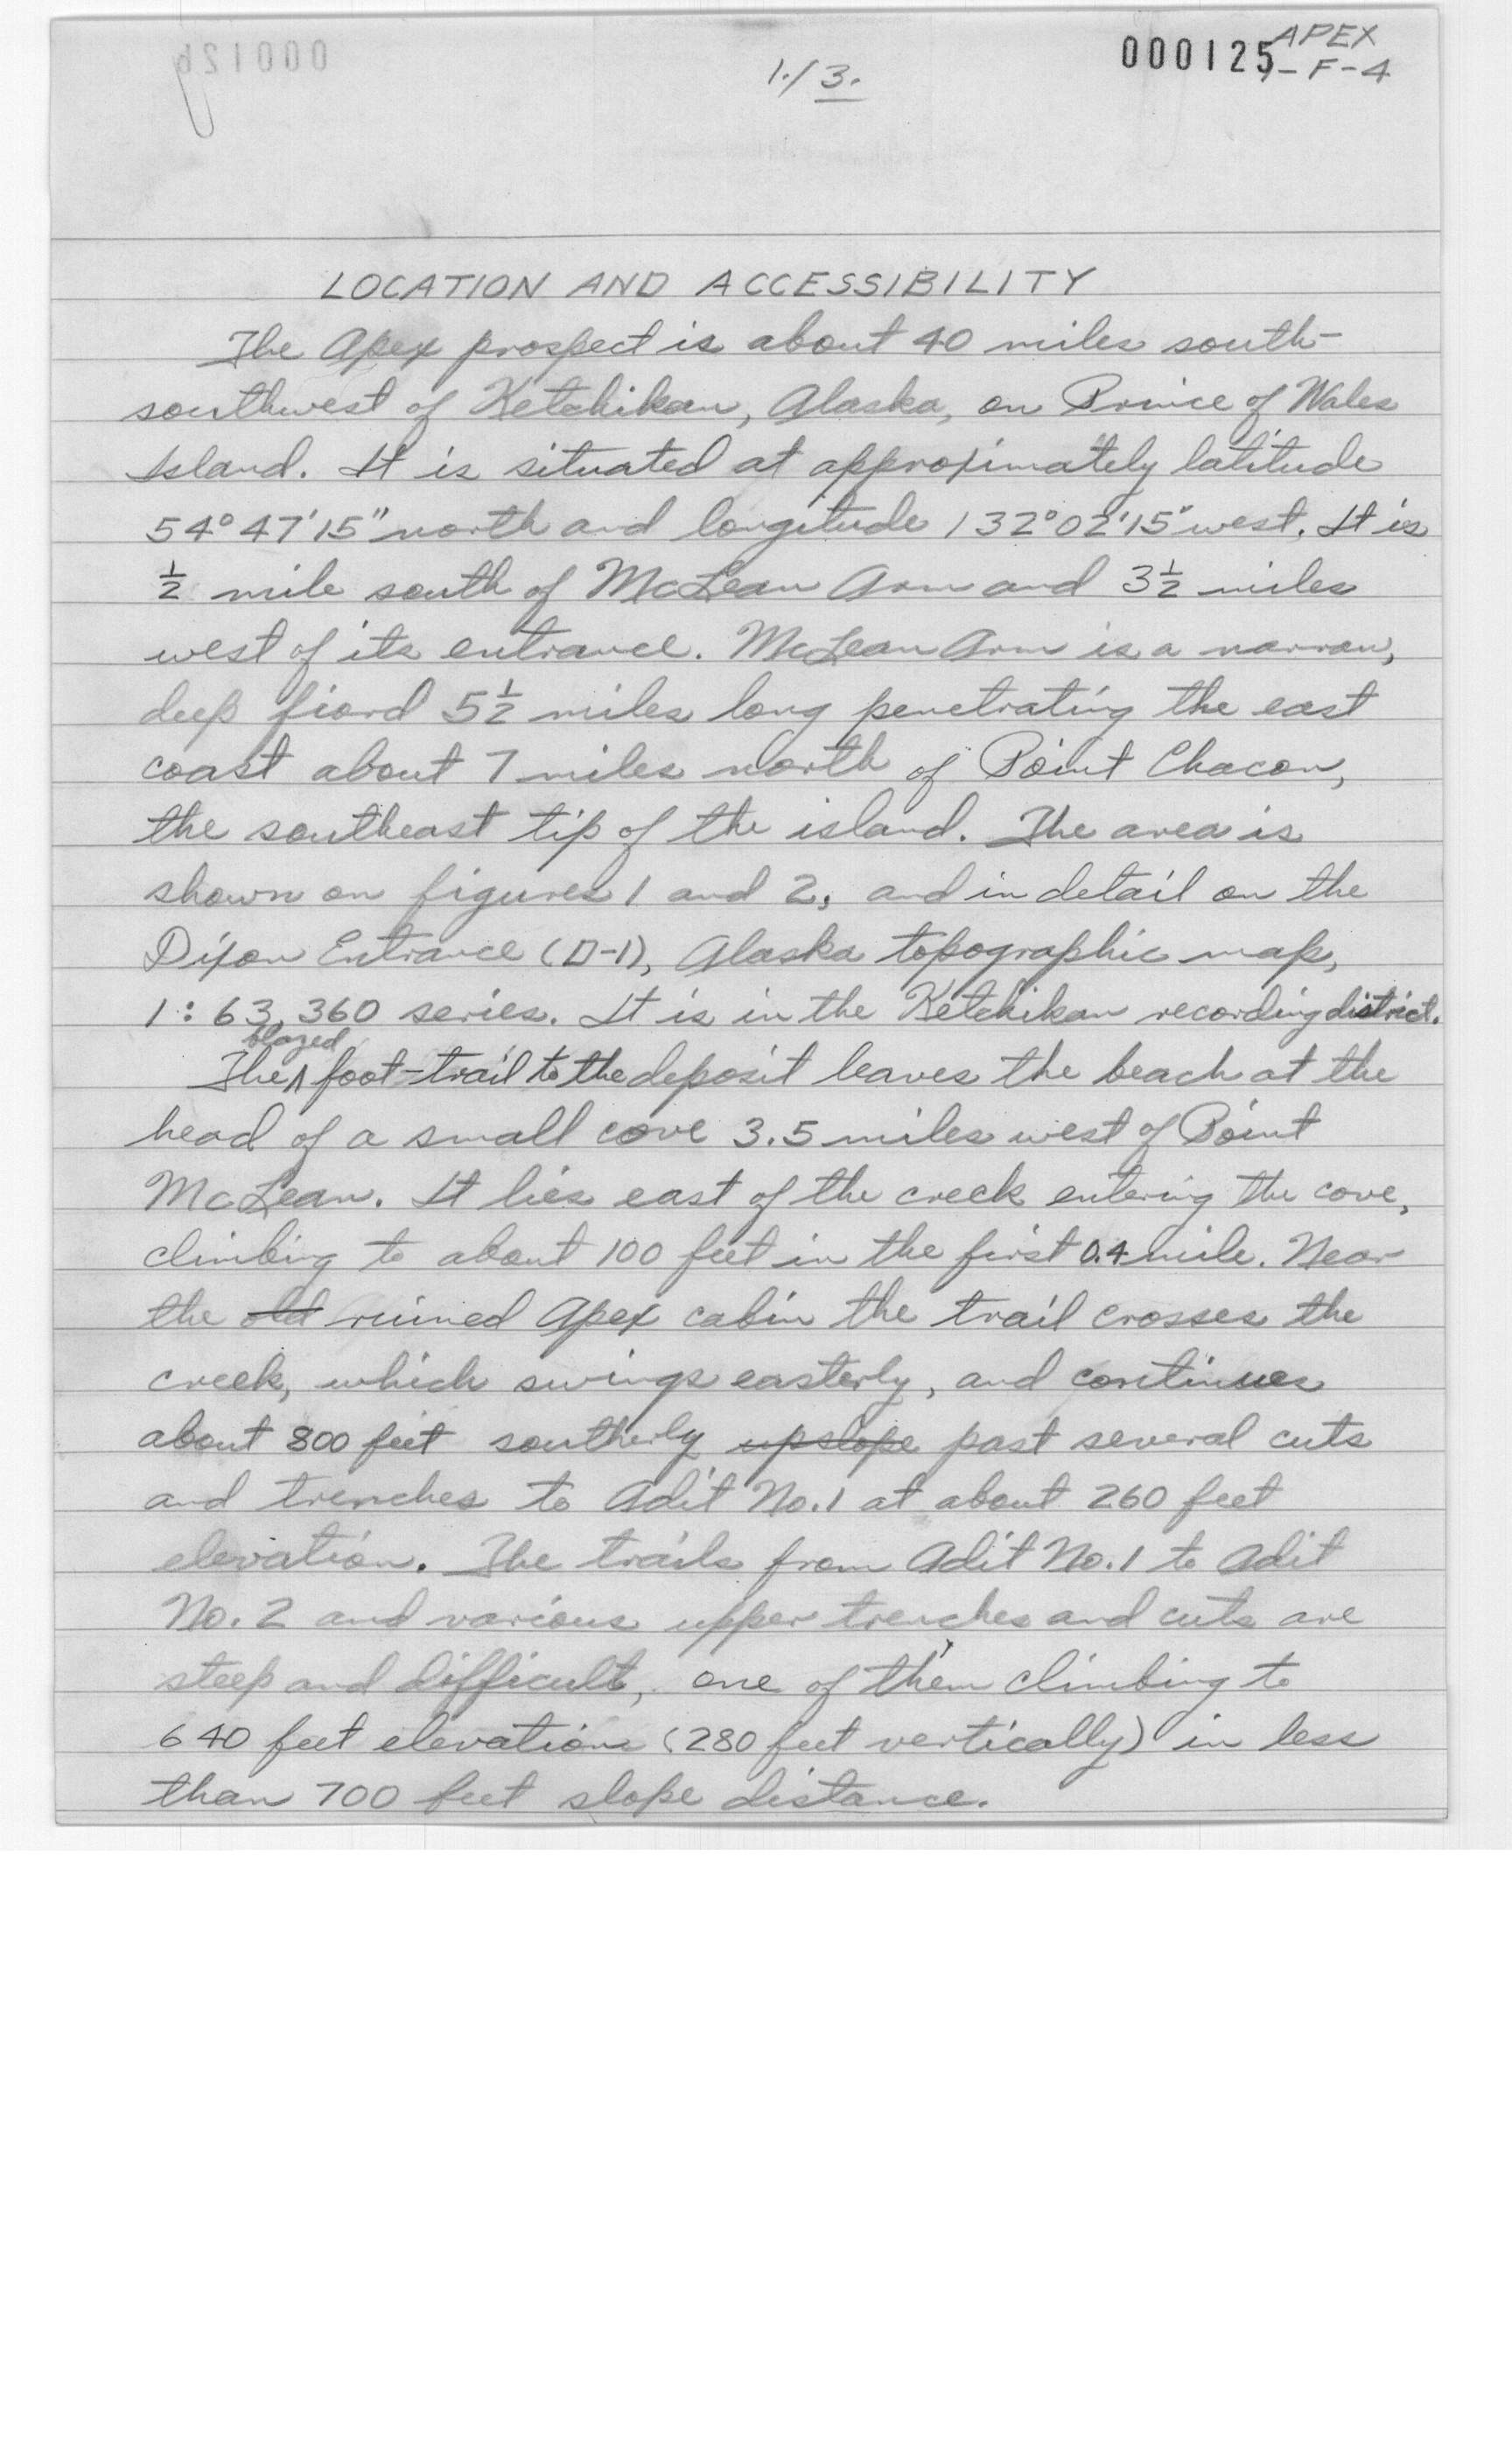 000126
1./3.
APEX
000125 1-F-4
LOCATION AND ACCESSIBILITY
The Apex prospect is about 40 miles south-
southwest of Ketchikan, Alaska, on Prince of Wales
Island. It is situated at approximately latitude
54° 47' 15" north and longitude 132° 02' 15" west. It is
½ mile south of McLean Arm and 3½ miles
west of its entrance. McLean Arm is a narrow,
deep fiord 5½ miles long penetrating the east
coast about 7 miles north of Point Chacon,
the southeast tip of the island. The area is
shown on figures 1 and 2, and in detail on the
Dixon Entrance (D-1), Alaska topographic map,
1:63,360 series. It is in the Ketchikan recording district.
blazed
The ^ foot-trail to the deposit leaves the beach at the
head of a small cove 3.5 miles west of Point
McLean. It lies east of the creek entering the cove,
climbing to about 100 feet in the first 0.4 mile. Near
the old ruined Apex cabin the trail crosses the
creek, which swings easterly, and continues
about 800 feet southerly upslope past several cuts
and trenches to Adit No. 1 at about 260 feet
elevation. The trails from Adit No. 1 to Adit
No. 2 and various upper trenches and cuts are
steep and difficult, one of them climbing to
640 feet elevation (280 feet vertically) in less
than 700 feet slope distance.